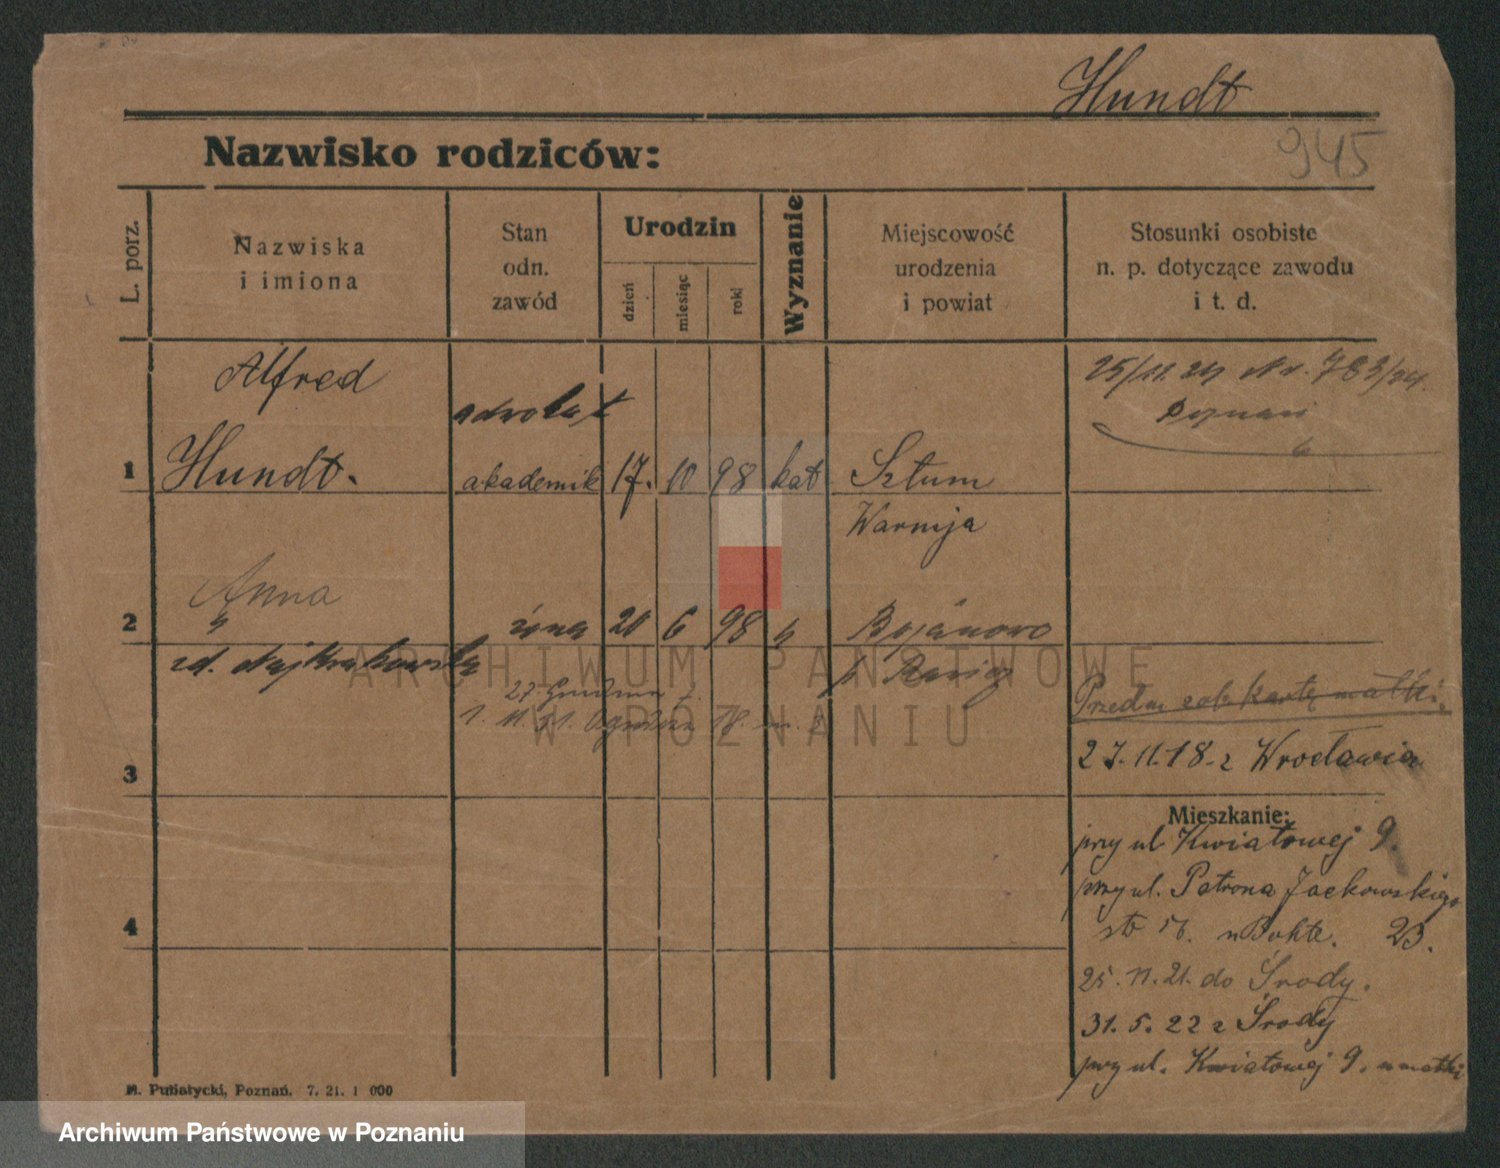 Hundt
945
Nazwisko rodziców:
L. porz.
Nazwiska
i imiona
Stan
odn.
zawód
Urodzin
dzień
miesiąc
rok
Wyznanie
Miejscowość
urodzenia
i powiat
Stosunki osobiste
n. p. dotyczące zawodu
i t. d.
Alfred
adwokat
25/11.24 Nr. 763/24.
Poznań
1 Hundt. akademik 17. 10 98 kat Sztum
Warmja
Anna
2 żona 20 6 98 Bojanowo
zd. Majtkrakowska
ARCHIWUM PAŃSTWOWE
W POZNANIU
27 Grudnia
Przedm kartę matki.
27.11.18. z Wrocławia
3
Mieszkanie:
przy ul Kwiatowej 9.
przy ul. Patrona Jackowskiego
23.
4
25. 11. 21. do Środy.
31. 5. 22 z Środy
przy ul. Kwiatowej 9. u matki
M. Putiatycki, Poznań. 7. 21. 1 000
Archiwum Państwowe w Poznaniu